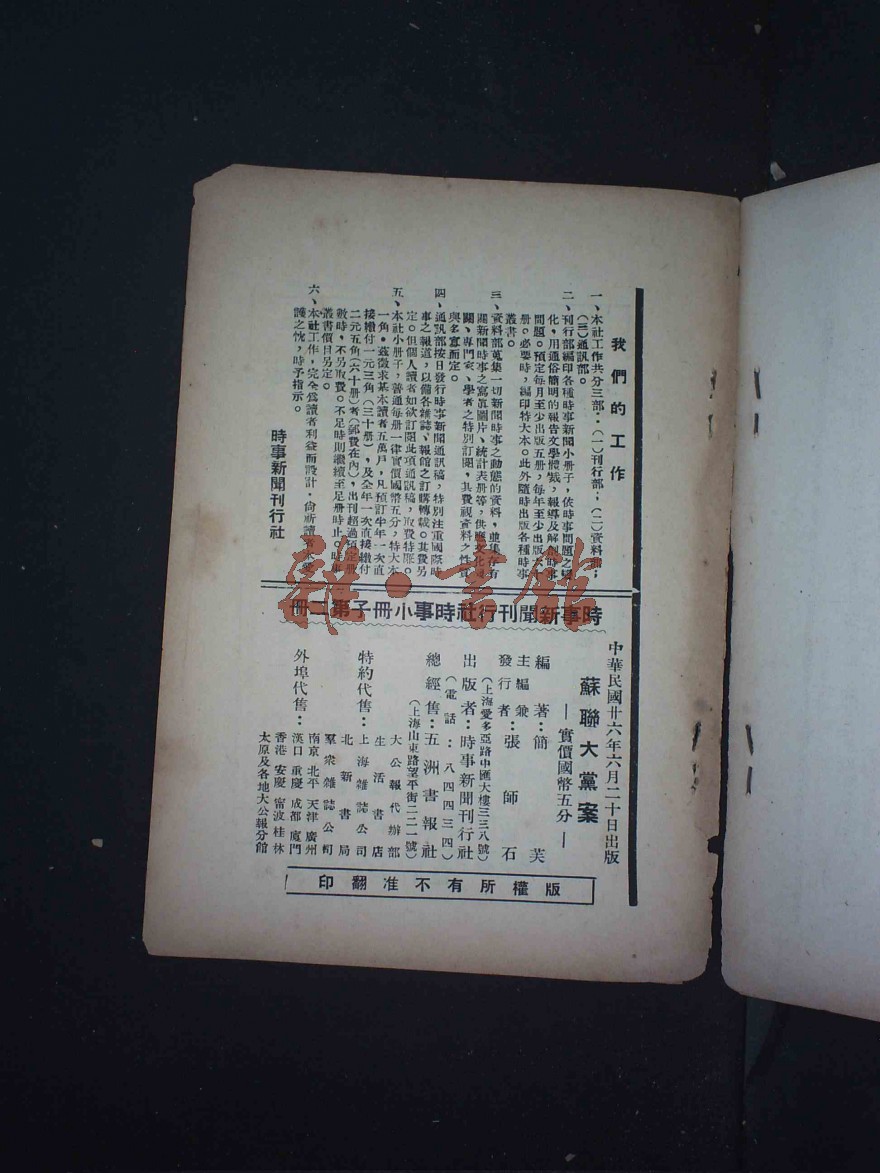 我們的工作
一、本社工作共分三部：（一）刊行部；（二）資料部；
（三）通訊部。
二、刊行部編印各種時事新聞小冊子，依時事問題之
化，用通俗簡明的報告文學體裁，報導及解剖時事
問題。預定每月至少出版五冊，每年至少出版六十
冊。必要時，編印特大本。此外隨時出版各種時事
叢書。
三、資料部蒐集一切新聞時事之動態的資料，並集存有
關新聞時事之寫眞圖片、統計表册等，供應文化
關、專門家、學者之特別訂閱，其費視資料之性質
與多寡而定。
四、通訊部按日發行時事新聞通訊稿，特別注重國際時
事之報道，以備各雜誌、報館之訂購轉載。其費另
定。但個人讀者如欲訂閱此項通訊稿，取費特廉。
五、本社小册子，普通每册一律實價國幣五分，特大本
一角。茲徵求基本讀者五萬戶，凡預訂半年一次直
接繳付一元三角（三十册），及全年一次直接繳付
二元五角（六十册）者（郵費在內），出刊超過預定册
數時，不另取費。不足時則繼續至足册時止。時事
叢書價目另定。
六、本社工作，完全爲讀者利益而設計，尚祈讀者本愛
護之忱，時予指示。
時事新聞刊行社
時事新聞刊行社時事小冊子第二冊
中華民國廿六年六月二十日出版
蘇聯大黨案
—實價國幣五分—
編著：簡芙
主編兼發行者：張師石
出版者：時事新聞刊行社
（上海愛多亞路中匯大樓三三八號）
（電話：八四四三四）
總經售：五洲書報社
（上海山東路望平街二二一號）
特約代售：
大公報代辦部
生活書店
上海雜誌公司
北新書局
羣衆雜誌公司
外埠代售：
南京 北平 天津 廣州
漢口 重慶 成都 廈門
香港 安慶 甯波 桂林
太原及各地大公報分館
版權所有不准翻印
雜·書館